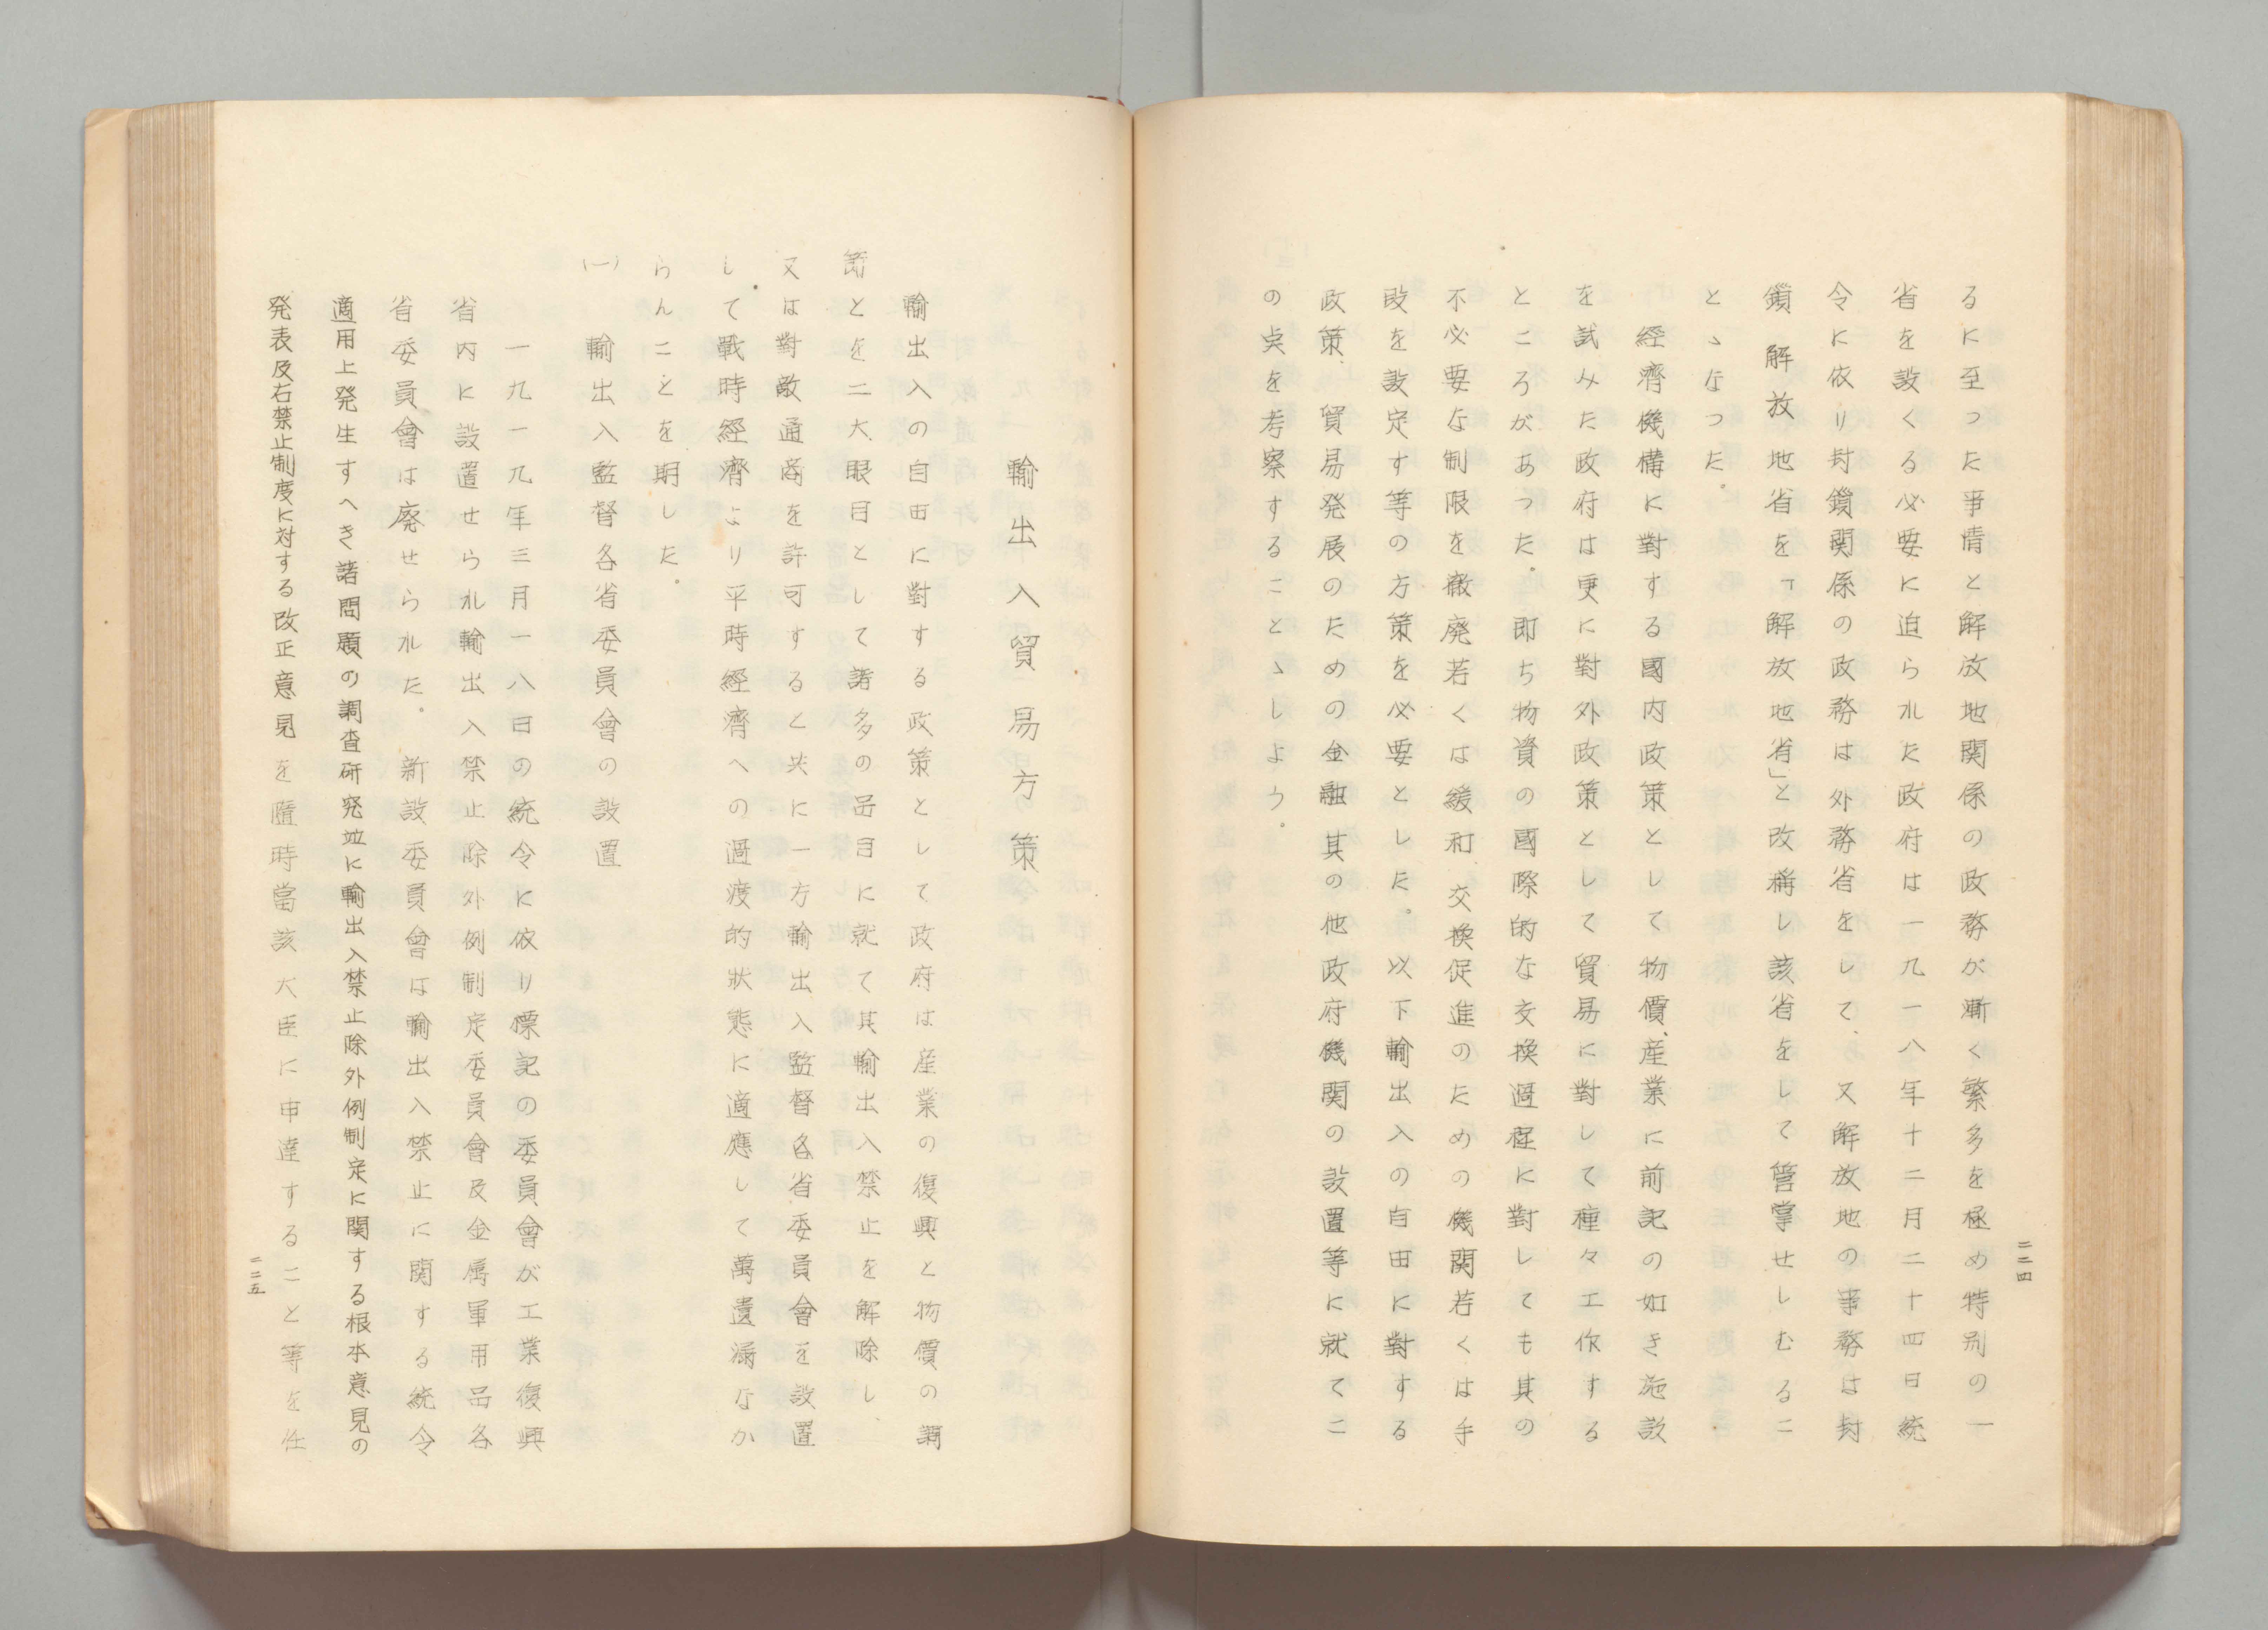 るに至つた事情と解放地関係の政務が漸く繁多を極め特別の一
省を設くる必要に迫られた政府は一九一八年十二月二十四日統
令に依り封鎖関係の政務は外務省をして、又解放地の事務は封
鎖 解放 地省を「解放地省」と改稱し該省をして管掌せしむるこ
とゝなつた。
經濟機構に對する國内政策として物價、産業に前記の如き施設
を試みた政府は更に對外政策として貿易に對して種々工作する
ところがあつた。即ち物資の國際的な交換過程に對しても其の
不必要な制限を撤廃若くは緩和 交換促進のための機関若くは手
段を設定す等の方策を必要とした。以下輸出入の自由に對する
政策、貿易発展のための金融其の他政府機関の設置等に就てこ
の点を考察することゝしよう。
二二四
輸出入貿易方策
輸出入の自由に對する政策として政府は産業の復興と物價の調
節とを二大眼目として諸多の品目に就て其輸出入禁止を解除し、
又は對敵通商を許可すると共に一方輸出入監督各省委員會を設置
して戰時經濟より平時經濟への過渡的狀態に適應して萬遺漏なか
らんことを期した。
(一) 輸出入監督各省委員會の設置
一九一九年三月一八日の統令に依り標記の委員會が工業復興
省内に設置せられ輸出入禁止除外例制定委員會及金属軍用品各
省委員會は廃せられた。 新設委員會は輸出入禁止に関する統令
適用上発生すへき諸問題の調査研究並に輸出入禁止除外例制定に関する根本意見の
発表及右禁止制度に対する改正意見を隨時當該大臣に申達すること等を任
二二五